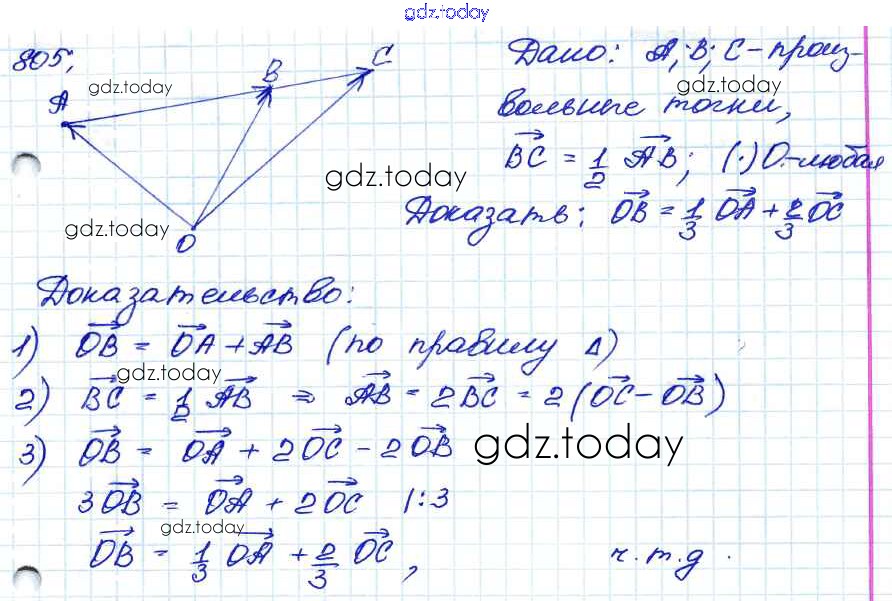 gdz.today
805.
A B C O
gdz.today
gdz.today
Дано: A; B; C – произ-
gdz.today
вольные точки,
BC = 1/2 AB; (·) O – любая
gdz.today
Доказать: OB = 1/3 OA + 2/3 OC
Доказательство:
1) OB = OA + AB (по правилу Δ)
gdz.today
2) BC = 1/2 AB ⇒ AB = 2BC = 2(OC – OB)
3) OB = OA + 2OC – 2OB
gdz.today
3OB = OA + 2OC |:3
gdz.today
OB = 1/3 OA + 2/3 OC, ч.т.д.